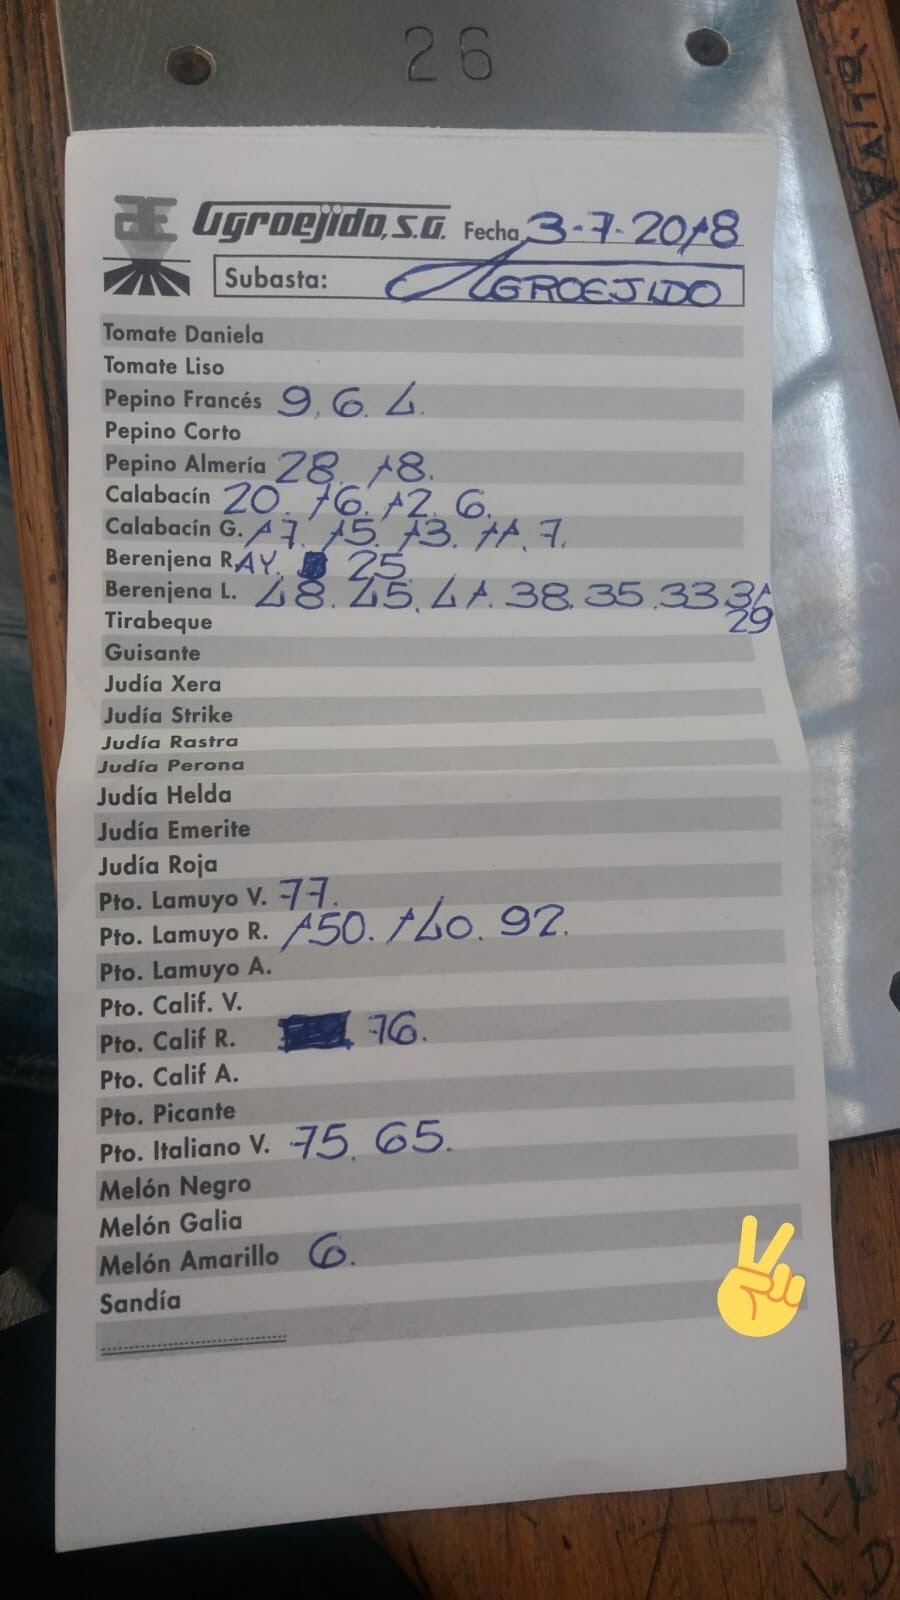 26
OLIVA
Agroejido, S.A. Fecha 3-7-2018
Subasta: AGROEJIDO
Tomate Daniela
Tomate Liso
Pepino Francés 9. 6. 4.
Pepino Corto
Pepino Almería 28. 18.
Calabacín 20. 16. 12. 6.
Calabacín G. 17. 15. 13. 11. 7.
Berenjena R.AY. 25
Berenjena L. 48. 45. 41. 38. 35. 33 31
29
Tirabeque
Guisante
Judía Xera
Judía Strike
Judía Rastra
Judía Perona
Judía Helda
Judía Emerite
Judía Roja
Pto. Lamuyo V. 77.
Pto. Lamuyo R. 150. 140. 92.
Pto. Lamuyo A.
Pto. Calif. V.
Pto. Calif R. 76.
Pto. Calif A.
Pto. Picante
Pto. Italiano V. 75. 65.
Melón Negro
Melón Galia
Melón Amarillo 6.
Sandía